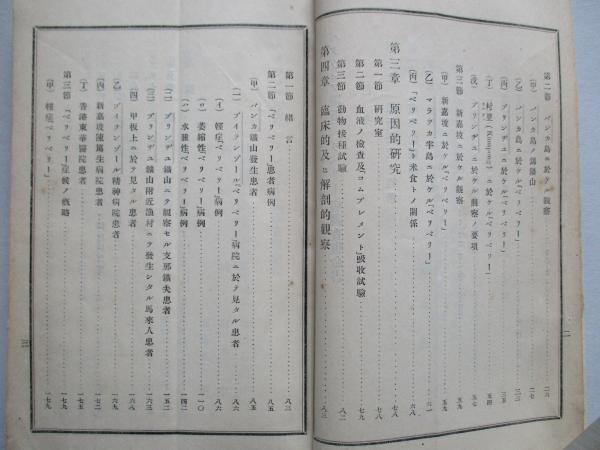 第二節 バンカ島ニ於ケル觀察…二六
(甲) バンカ島ノ錫鑛山…二六
(乙) バンカ島ニ於ケル「ベリベリー」…二七
(丙) ブリンヂユニ於ケル「ベリベリー」…三五
(丁) 村里(Kampong)ニ於ケル「ベリベリー」…五四
(戊) ブリンヂユニ於ケル觀察ノ要項…五七
第三節 新嘉坡ニ於ケル觀察…五九
(甲) 新嘉坡ニ於ケル「ベリベリー」…五九
(乙) マラツカ半島ニ於ケル「ベリベリー」…六一
(丙) 「ベリベリー」ト米食トノ關係…六八
第三章 原因的研究…七八
第一節 研究室…七八
第二節 血液ノ檢査及「コムプレメント」吸收試驗…七九
第三節 動物接種試驗…八二
第四章 臨床的及ビ解剖的觀察…八三
二
第一節 緒言…八三
第二節 「ベリベリー」患者病例…八五
(甲) バンカ鑛山發生患者…八五
(一) ブイテンゾール「ベリベリー」病院ニ於テ見タル患者…八六
(イ) 輕症「ベリベリー」病例…八六
(ロ) 萎縮性「ベリベリー」病例…一一〇
(ハ) 水腫性「ベリベリー」病例…一四二
(二) ブリンヂユ鑛山ニテ觀察セル支那鑛夫患者…一五二
(三) ブリンヂユ鑛山附近漁村ニテ發生シタル馬來人患者…一六三
(四) 甲板上ニ於テ見タル患者…一六六
(乙) ブイテンゾール精神病院患者…一六九
(丙) 新嘉坡陳篤生病院患者…一七二
(丁) 香港東華醫院患者…一七六
第三節 「ベリベリー」症候ノ概略…一七九
(甲) 輕症「ベリベリー」…一七九
三